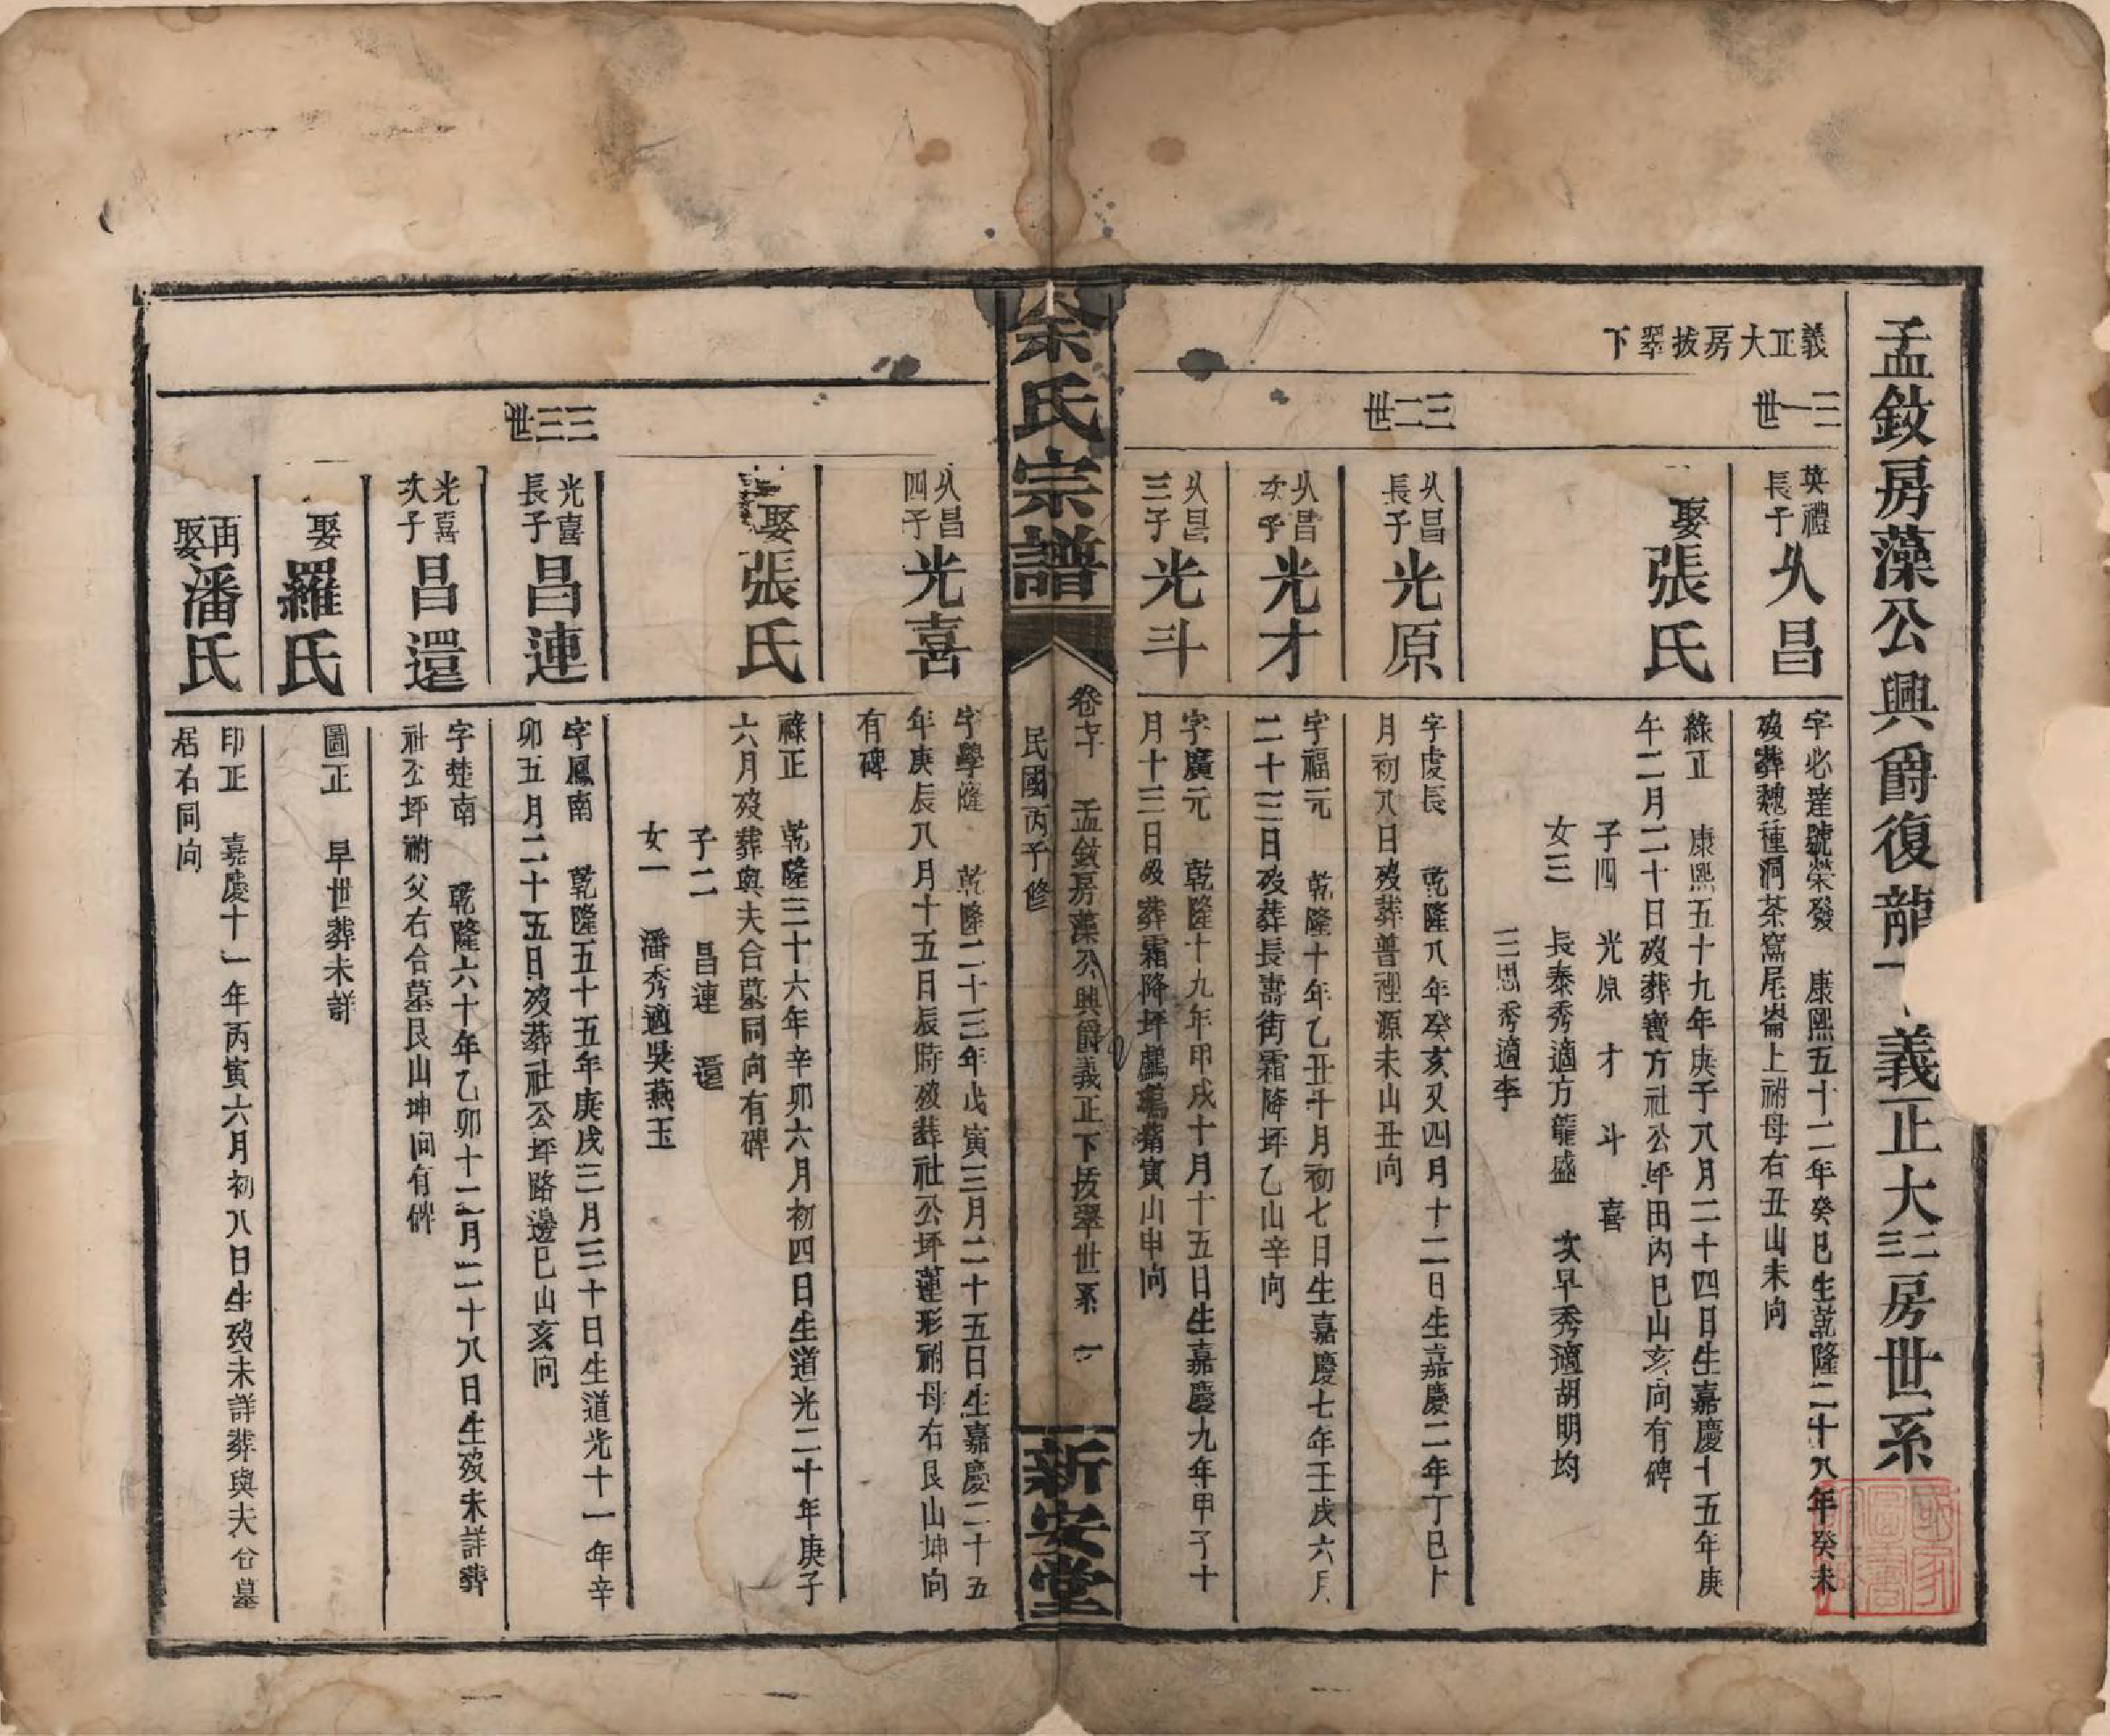 孟鈫房藻公興爵復龍 義正大二三房世系
義正大房拔翠下
三一世
英禮長子 久昌
字必達號榮發 康熙五十二年癸巳生乾隆二十八年癸未
歿葬魏種洞茶窩尾崙上祔母右丑山未向
娶 張氏
緣正 康熙五十九年庚子八月二十四日生嘉慶十五年庚
午二月二十日歿葬寶方社公坪田內巳山亥向有碑
子四 光原 才 斗 喜
女三 長泰秀適方龍盛 次早秀適胡明均
三思秀適李
三二世
久昌長子 光原
字虔長 乾隆八年癸亥又四月十二日生嘉慶二年丁巳十
月初八日歿葬普裡源未山丑向
久昌次子 光才
字福元 乾隆十年乙丑十月初七日生嘉慶七年壬戌六月
二十三日歿葬長壽街霜降坪乙山辛向
久昌三子 光斗
字廣元 乾隆十九年甲戌十月十五日生嘉慶九年甲子十
月十三日歿葬霜降坪 寅山申向
余氏宗譜
卷七十 孟鈫房藻公興爵義正下拔翠世系 一
民國丙子修
新安堂
久昌四子 光喜
字學隆 乾隆二十三年戊寅三月二十五日生嘉慶二十五
年庚辰八月十五日辰時歿葬社公坪蓮形祔母右艮山坤向
有碑
娶 張氏
祿正 乾隆三十六年辛卯六月初四日生道光二十年庚子
六月歿葬與夫合墓同向有碑
子二 昌連 還
女一 潘秀適吳燕玉
三三世
光喜長子 昌連
字鳳南 乾隆五十五年庚戌三月三十日生道光十一年辛
卯五月二十五日歿葬社公坪路邊巳山亥向
光喜次子 昌還
字楚南 乾隆六十年乙卯十二月二十八日生歿未詳葬
社公坪祔父右合墓艮山坤向有碑
娶 羅氏
圖正 早世葬未詳
再娶 潘氏
印正 嘉慶十一年丙寅六月初八日生歿未詳葬與夫合墓
居右同向